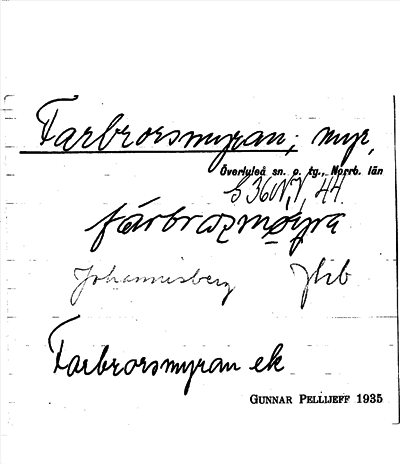 Farbrorsmyran; myr,
Överluleå sn. o. tg., Norrb. län
S 36 N,V, 44.
fárbrorsmøyra
Johannisberg
Farbrorsmyran ek
GUNNAR PELLIJEFF 1935